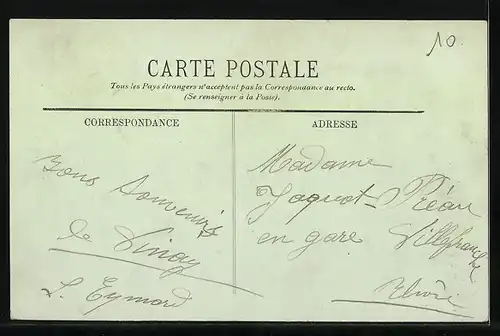 10.
CARTE POSTALE
Tous les Pays étrangers n'acceptent pas la Correspondance au recto.
(Se renseigner à la Poste).
CORRESPONDANCE
Bons Souvenirs
de Vinay
L. Eymard
ADRESSE
Madame
Jaquot-Préau
en gare Villefranche
Rhône